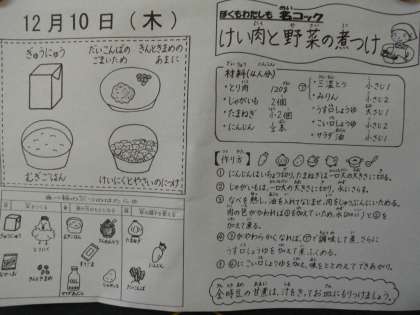 12月10日(木)
ぎゅうにゅう
だいこんばの
ごまいため
きんときまめの
あまに
むぎごはん
けいにくとやさいのにつけ
ぼくもわたしも 名コック
けい肉と野菜の煮つけ
材料(4人分)
・とり肉 120g
・じゃがいも 2個
・たまねぎ 小2個
・にんじん
・三温とう 小さじ2
・みりん 小さじ2
・うす口しょうゆ 大さじ1
・こい口しょうゆ 小さじ1
・サラダ油 小さじ1
【作り方】
① にんじんはいちょう切り、たまねぎは一口大の大きさに切る。
② じゃがいもは、一口大の大きさに切り、水にさらす。
③ なべを熱し、油を入れなじませ、肉をしょうにいためる。
肉の色がかわれば①を加えていため、水(100cc)と②を
加えて煮る。
④ ③がやわらかくなれば、㋐で調味して煮、さらに
うす口しょうゆを加えて煮ふくめる。
⑤ ④にこい口しょうゆを加え、味をととのえてできあがり。
金時豆の甘煮は、汁をきってお皿にもりつけましょう。